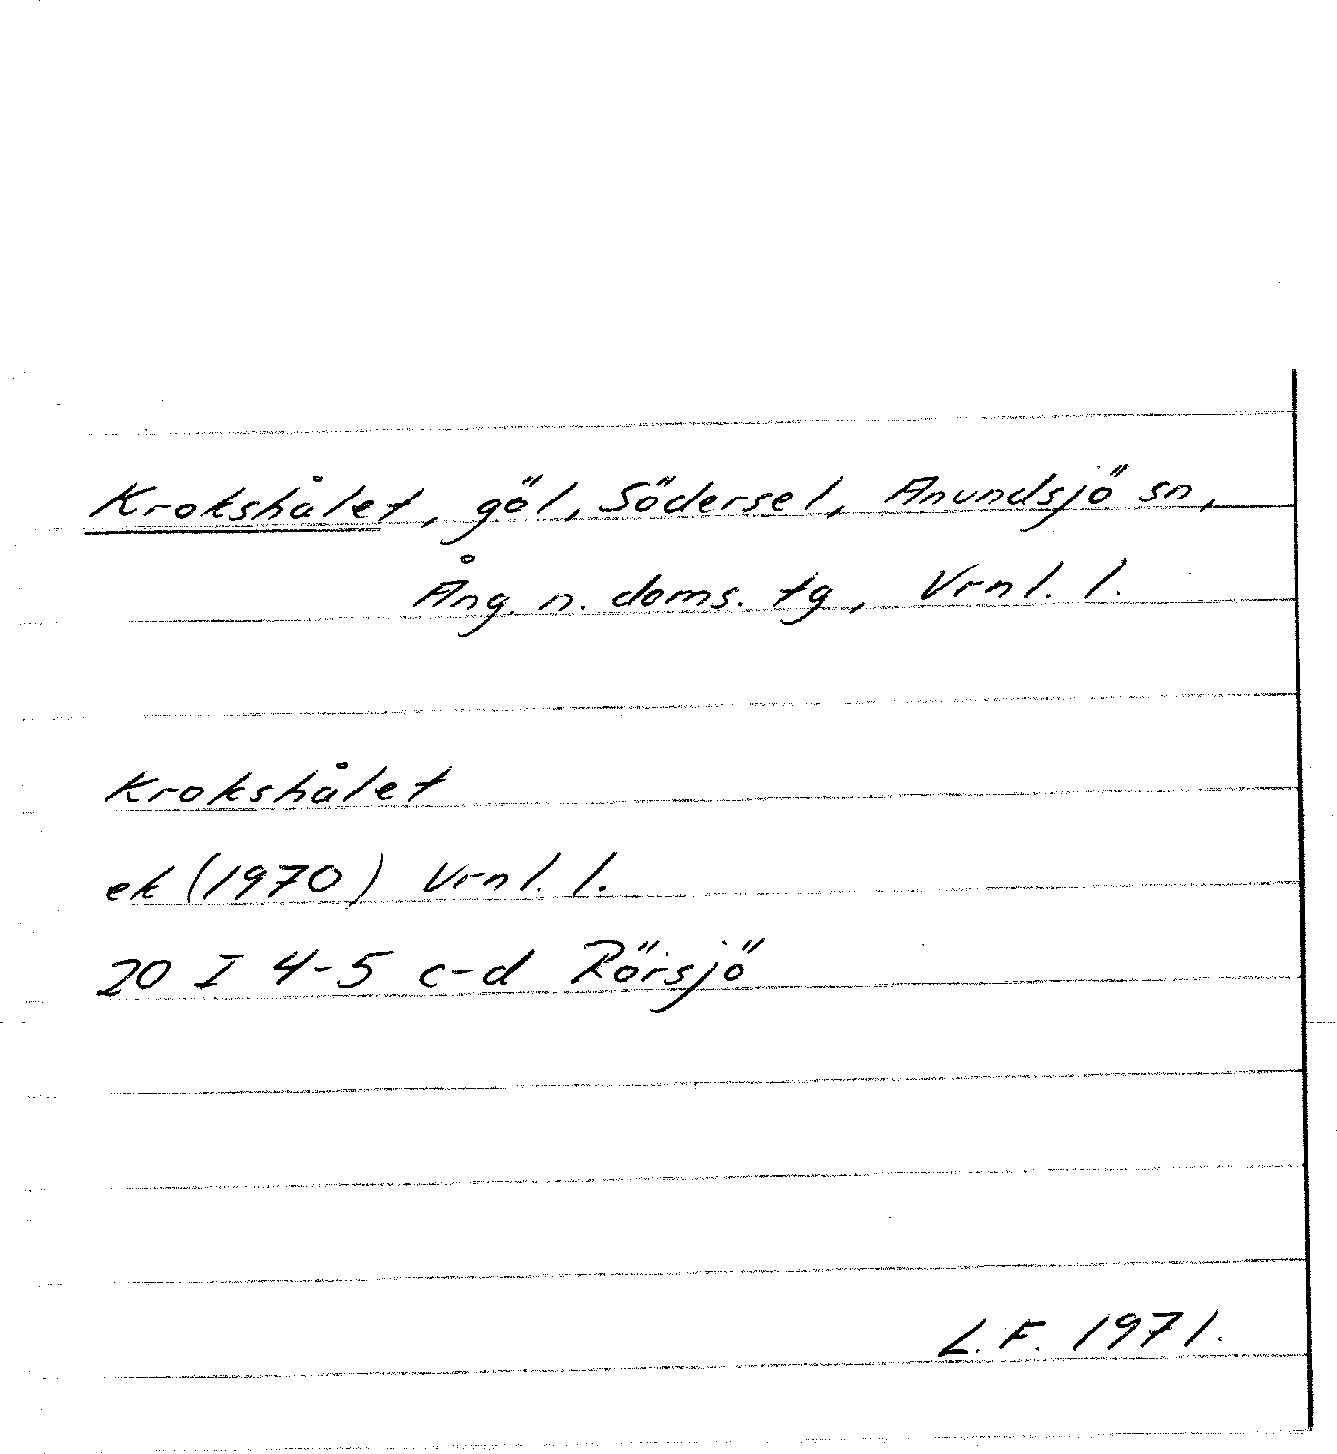 Krokshålet, göl, Södersel, Anundsjö sn,
Ång. n. doms. tg, Vrnl. l.
Krokshålet
ek (1970) Vrnl. l.
20 I 4-5 c-d Rörsjö
L.F. 1971.